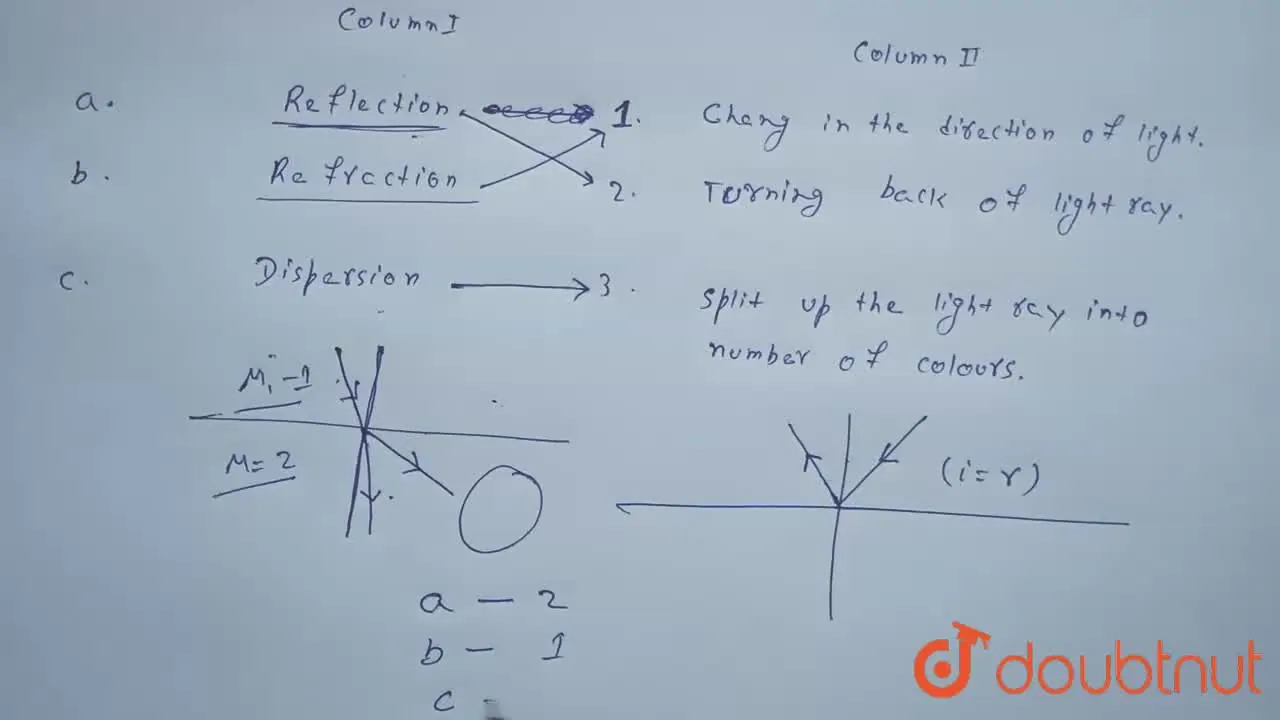 Column I
Column II
a. Reflection 1. Chang in the direction of light.
b. Refraction 2. Turning back of light ray.
c. Dispersion 3. split up the light ray into
number of colours.
μ₁-1
μ=2
(i=r)
a - 2
b - 1
c -
doubtnut